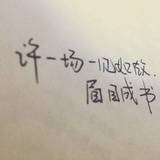 许一场一见如故,
眉目成书